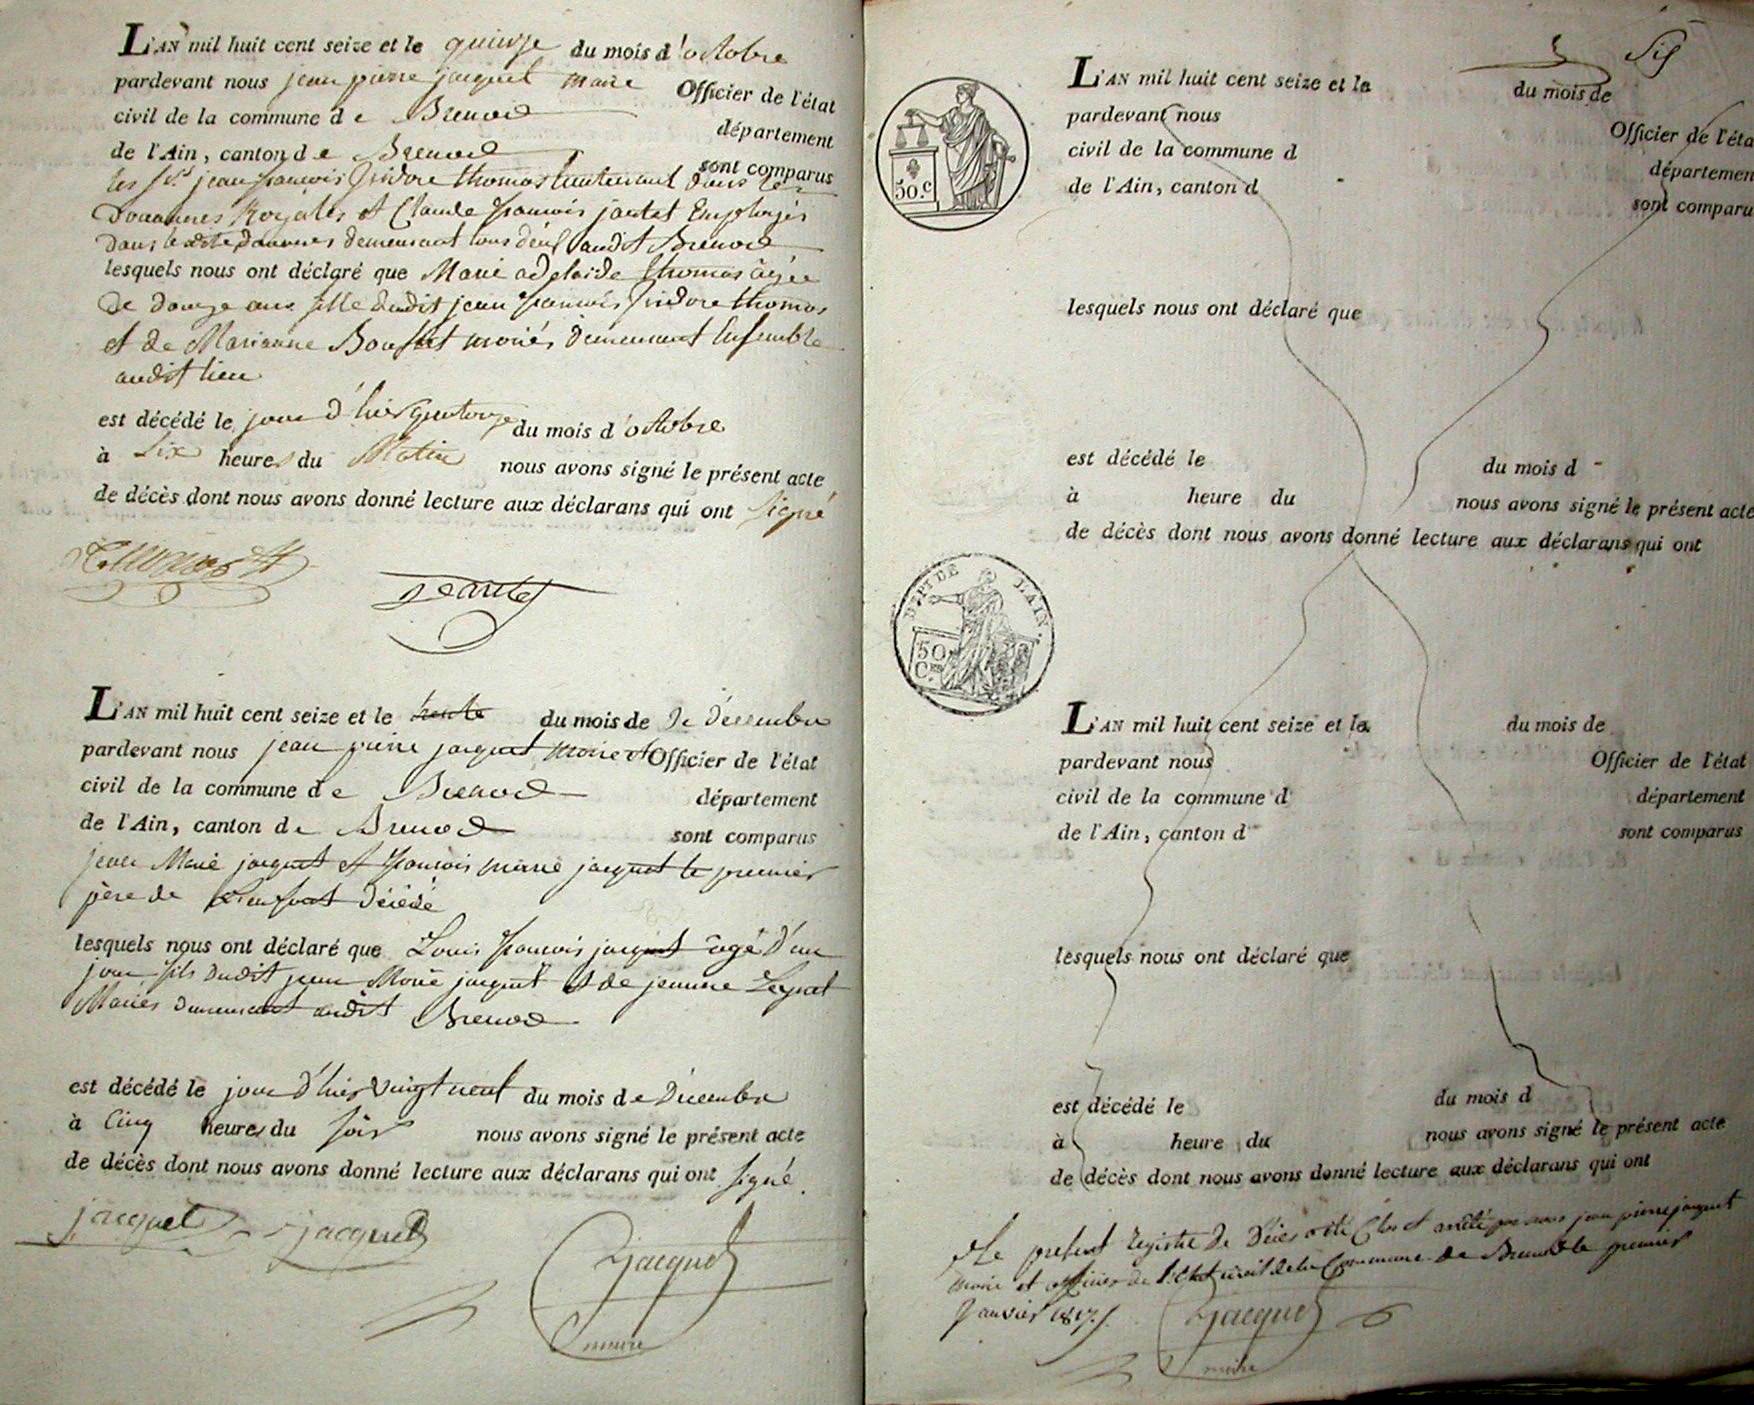 L'AN mil huit cent seize et le quinze du mois d'octobre
pardevant nous jean pierre jacquet maire Officier de l'état
civil de la commune de Brenod département
de l'Ain, canton de Brenod sont comparus
les Srs jean francois Isidore thomas lieutenant dans les
Douannes Royales et Claude francois jantet Employés
dans les douannes demeurant tous deux audit Brenod
lesquels nous ont déclaré que Marie adelaide thomas âgée
de douze ans fille dudit jean francois Isidore thomas
et de Marianne mariés demeurant Ensemble
audit lieu
est décédé le jour d'hier quatorze du mois d'octobre
à Six heures du Matin nous avons signé le présent acte
de décès dont nous avons donné lecture aux déclarans qui ont signé
Thomas
L'AN mil huit cent seize et le trente du mois de De Décembre
pardevant nous jean pierre jacquet maire et Officier de l'état
civil de la commune de Brenod département
de l'Ain, canton de Brenod sont comparus
jean Marie jacquet et francois marie jacquet le premier
père de L'enfant décédé
lesquels nous ont déclaré que Louis francois jacquet âgé d'un
jour fils dudit jean Marie jacquet et de jeanne
Mariés demeurant audit Brenod
est décédé le jour d'hier vingt neuf du mois de Décembre
à Cinq heures du soir nous avons signé le présent acte
de décès dont nous avons donné lecture aux déclarans qui ont signé.
jacquet jacquet
jacquet
maire
Six
50.C
L'AN mil huit cent seize et le du mois de
pardevant nous Officier de l'éta
civil de la commune d départemen
de l'Ain, canton d sont comparu
lesquels nous ont déclaré que
est décédé le du mois d
à heure du nous avons signé le présent acte
de décès dont nous avons donné lecture aux déclarans qui ont
DEPT DE L'AIN.
50
Ces.
L'AN mil huit cent seize et le du mois de
pardevant nous Officier de l'état
civil de la commune d département
de l'Ain, canton d sont comparus
lesquels nous ont déclaré que
est décédé le du mois d
à heure du nous avons signé le présent acte
de décès dont nous avons donné lecture aux déclarans qui ont
Le présent Registre de Décès a été Clos et arrêté par nous jean pierre jacquet
maire et officier de l'Etat civil de la Commune de Brenod le premier
Janvier 1817.
jacquet
maire